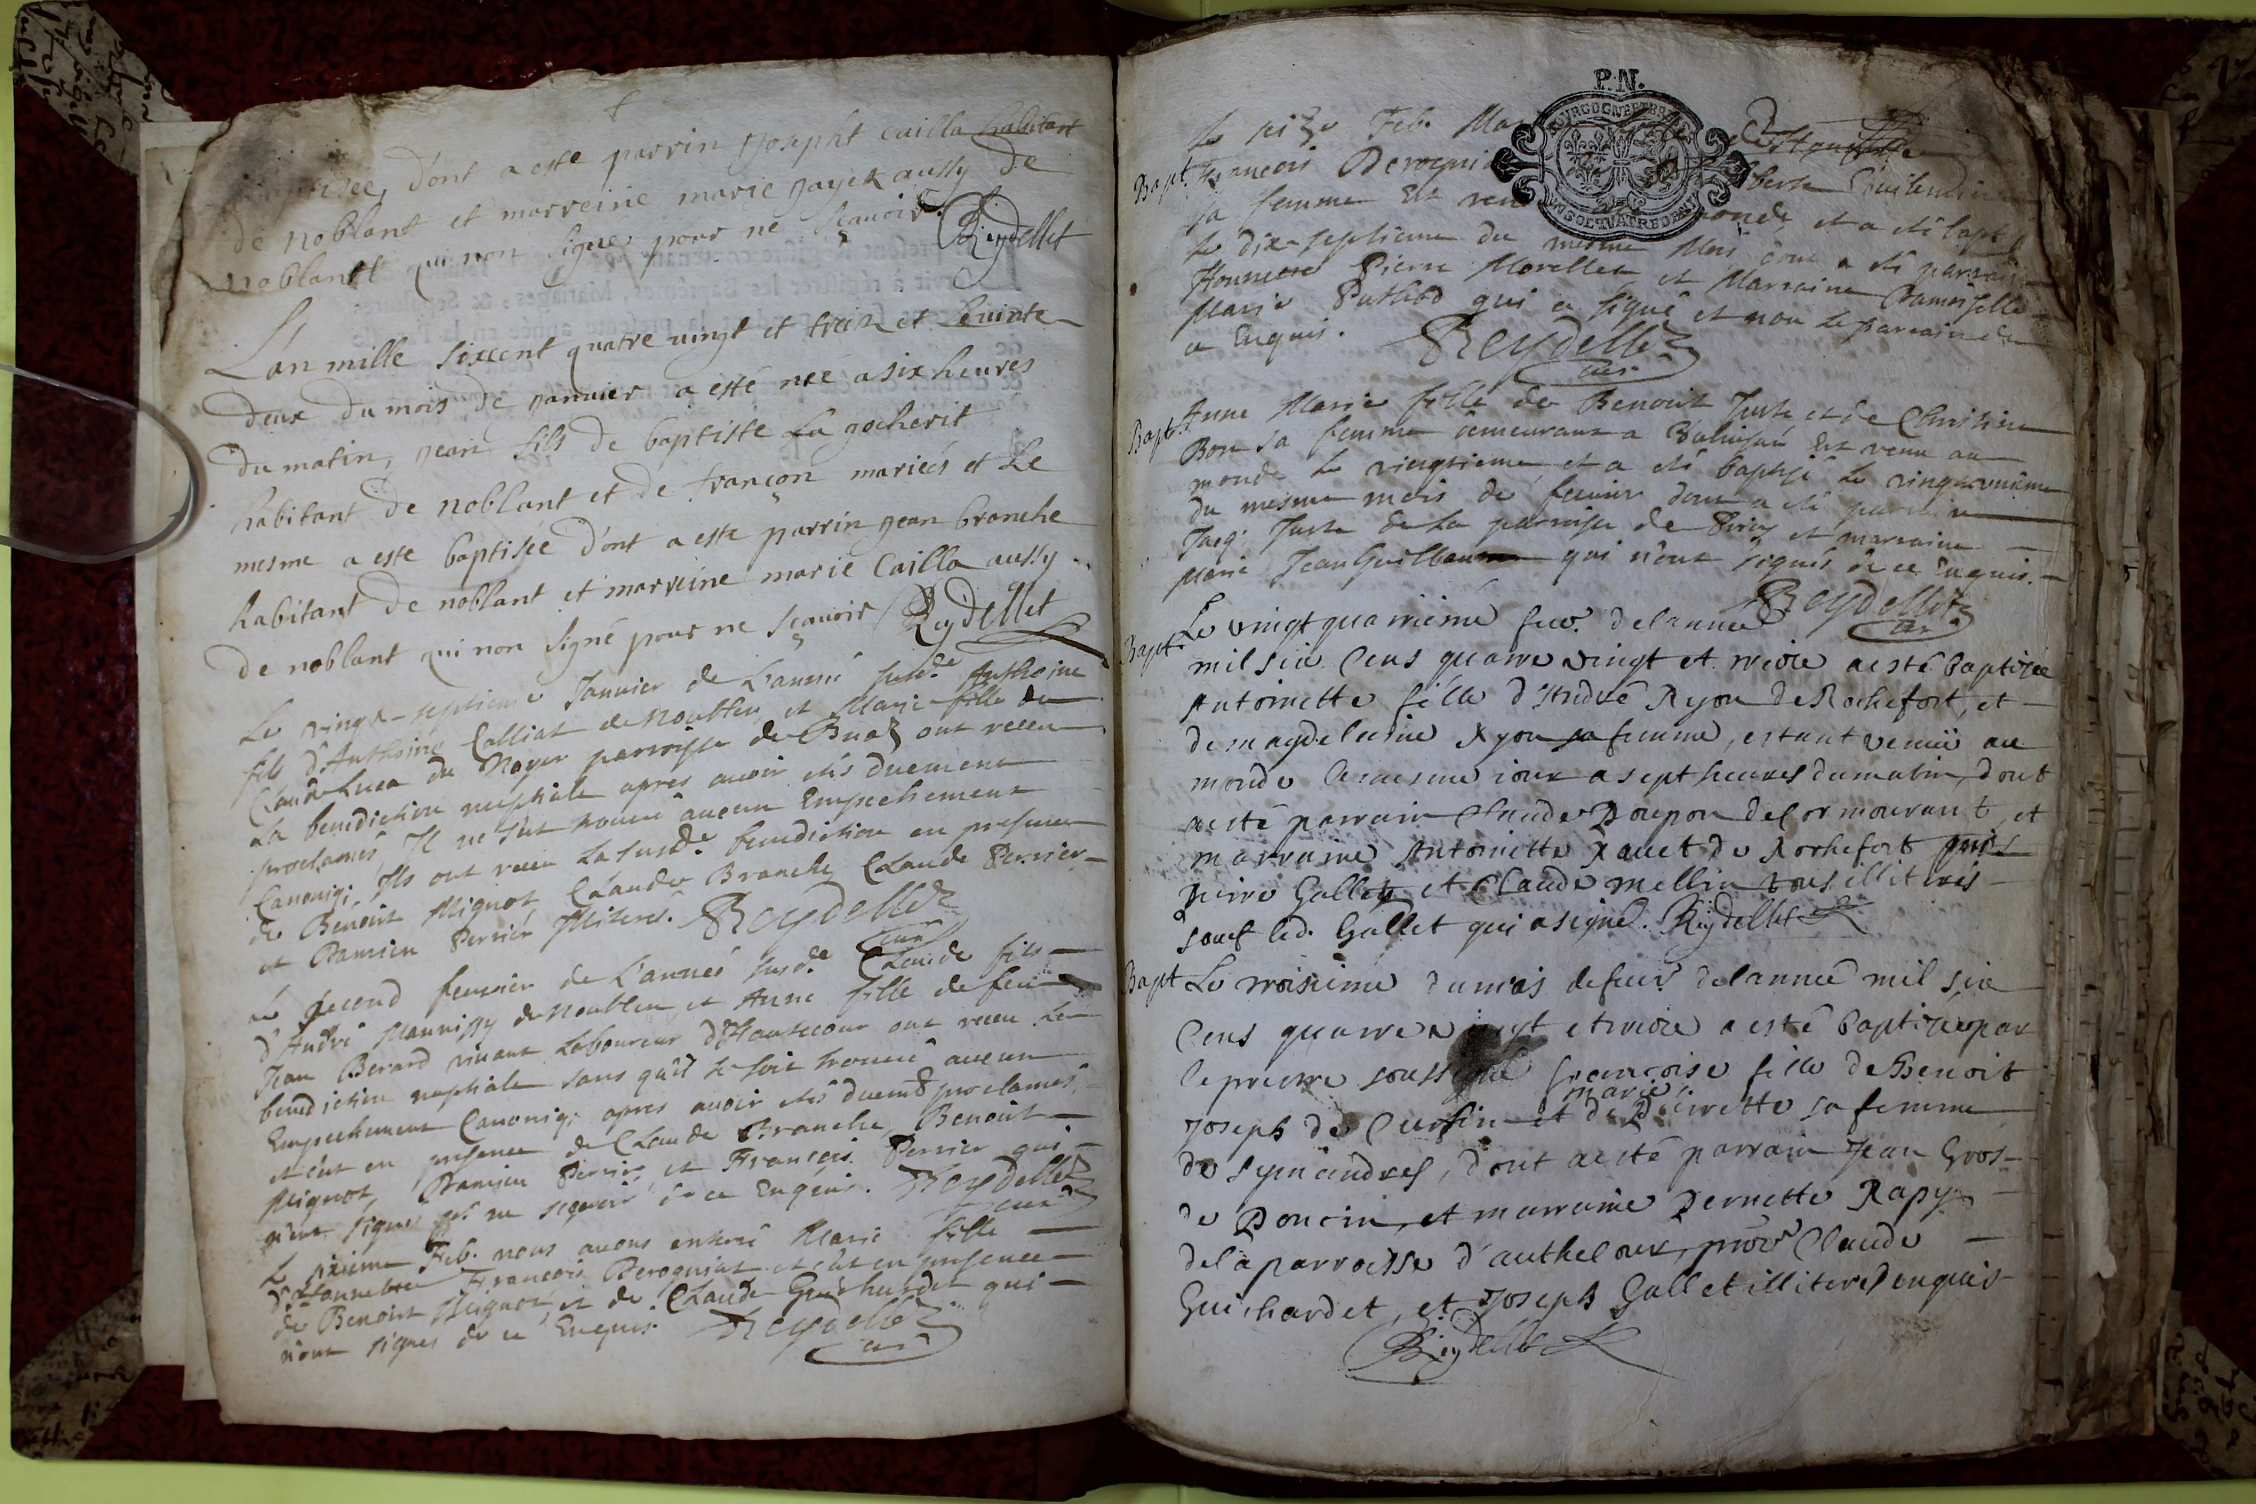 baptisée, dont a este parrin Josepht Cailla habitant
de noblant et marreine marie payek aussy de
noblantt qui non signes pour ne sçauoir. Reydellet
L'an mille sixcent quatre vingt et traiz et le vinte
deux du mois de januier a esté née a six heures
du matin, jean fils de baptiste La gocherit
habitant de noblant et de françon mariées et Le
mesme a este baptisée dont a este parrin jean branche
habitant de noblant et marreine marie Cailla aussy
de noblant qui non signé pour ne sçauoir Reydellet
Le vingt-septieme Januier de L'année susd.e Anthoine
fils d'Anthoine Calliat de Noublen et Marie fille de
Claude Luca du Noyer parroisse de Buaz ont receu
la benediction nuptiale apres auoir etés duement
proclamés, Il ne s'ut trouué aucun Empechement
Canoniq; Ils ont receu La susd.e benediction en presence
de Benoist Mignot, Claude Branche, Claude Perrier
et Damien Perrier Illiterés. Reydellet
cure
Le second feurier de L'année susd.e Claude fils
d'André Mannissy de Noublen, et Anne fille de feu
Jean Berard viuant Laboureur d'Hautecour ont receu La
benediction nuptiale sans qu'il se soit trouué aucun
Empechement Canoniq; apres auoir etés duem.t proclamés,
et c'ut en presence de Claude Branche, Benoist
Mignot, Damien Perrier, et François Perrier qui
n'ont signes p.r ne sçauoir de ce Enquis. Reydellet
cure
Le sixieme Feb. nous auons enterré Marie fille
d'Honnebre François Derognat et c'ut en presence
de Benoist Mignot, et de Claude Guichardet qui
n'ont signes de ce Enquis. Reydellet
curé
P.N.
Le seize Feb. Mar
Bapt. François Derognia
sa femme Est ven monde, et a eté bapt.
le dix-septieme du mesme Mois dont a eté parrain
Honneste Pierre Morellet et Marraine Damoiselle
Marie Puthod qui a signé et non le parrain de
ce Enquis. Reydellet
cure
Bapt. Anne Marie fille de Benoist Juste et de Christine
Bon sa femme demeurant a Est venu au
monde le vingtieme, et a eté baptisé le vingtuniéme
du mesme mois de feurier dont a eté parrain
Jacq; Juste de La parroisse de et marraine
Marie Jean Guilbaume qui n'ont signés de ce Enquis.
Reydellet
cur
Bapt. Le vingt quatriémé feur. de l'année
mil six Cens quatre vingt et treize a esté baptizée
Antoinette fille d'André Ryon de Rochefort, et
de magdeleine Ryon sa femme, estant venuë au
monde le mesme jour a sept heures du matin, dont
a esté parrain Claude Poupon de Cormourant, et
marraine Antoinette Rauet de Rochefort pnts
pierre Gallet et Claude mellin tous illiteres
sauf led. Gallet qui a signé. Reydellet
Bapt Le troisieme du mois de feur de l'année mil six
Cens quatre vingt et treize a esté baptizée par
le prestre soussigné françoise fille de Benoit
marie
Joseph de Curfin et de pierrette sa femme
de symandres, dont a esté parrain Jean Gros
de Poncin, et marraine Pernette Rapy
de la parroisse d'authelour, Claude
Guichardet, et Joseph Gallet illiteres enquis
Reydellet